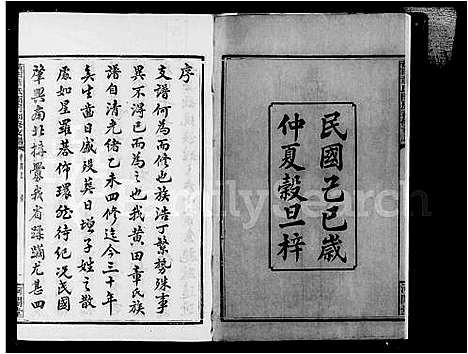 民國己巳歲
仲夏穀旦梓
序
支譜何為而修也族浩丁繁勢殊事
異不得已而為之也我黃田章氏族
譜自清光緒乙未四修迄今三十年
矣生齒日盛瑛日增子姓之散
處如星羅碁佈環能待紀況民國
肇興南北搆釁我省蹂躪尤甚四